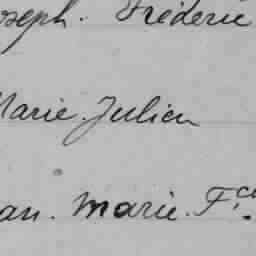 oseph. Fréderic
Marie. Julien
an. Marie. F.ço